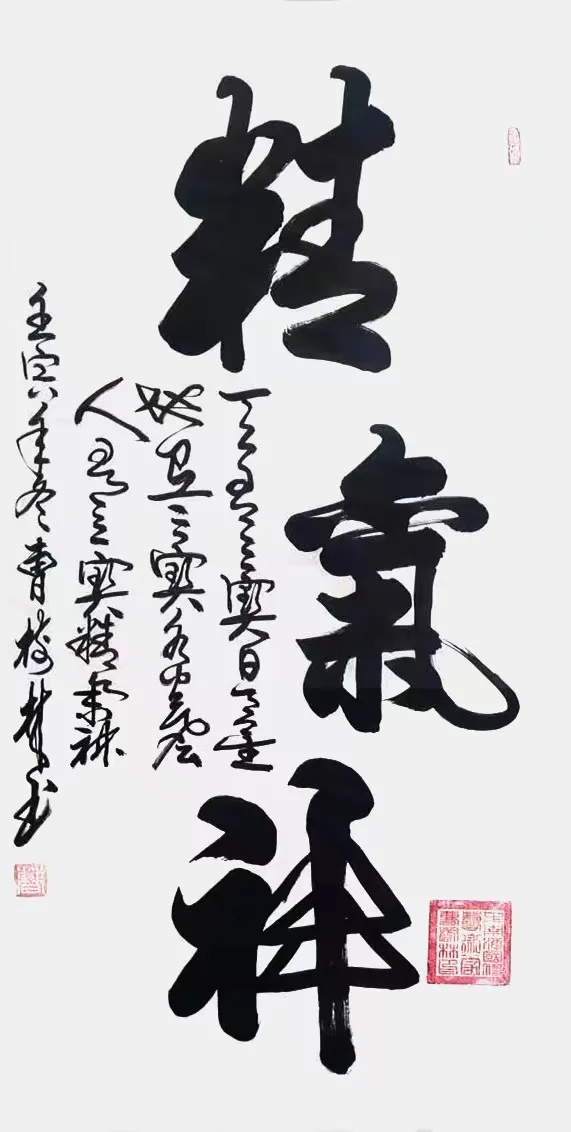 精氣神
天有三寶日月星
地有三寶水
人有三寶精氣神
壬寅年冬曹林书